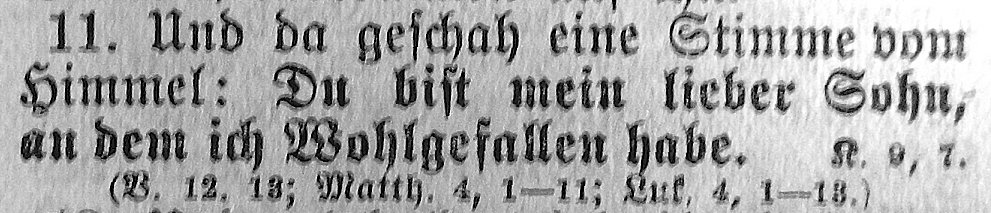 11. Und da geschah eine Stimme vom
Himmel: Du bist mein lieber Sohn,
an dem ich Wohlgefallen habe. K. 9, 7.
(V. 12. 13; Matth. 4, 1—11; Luk. 4, 1—13.)